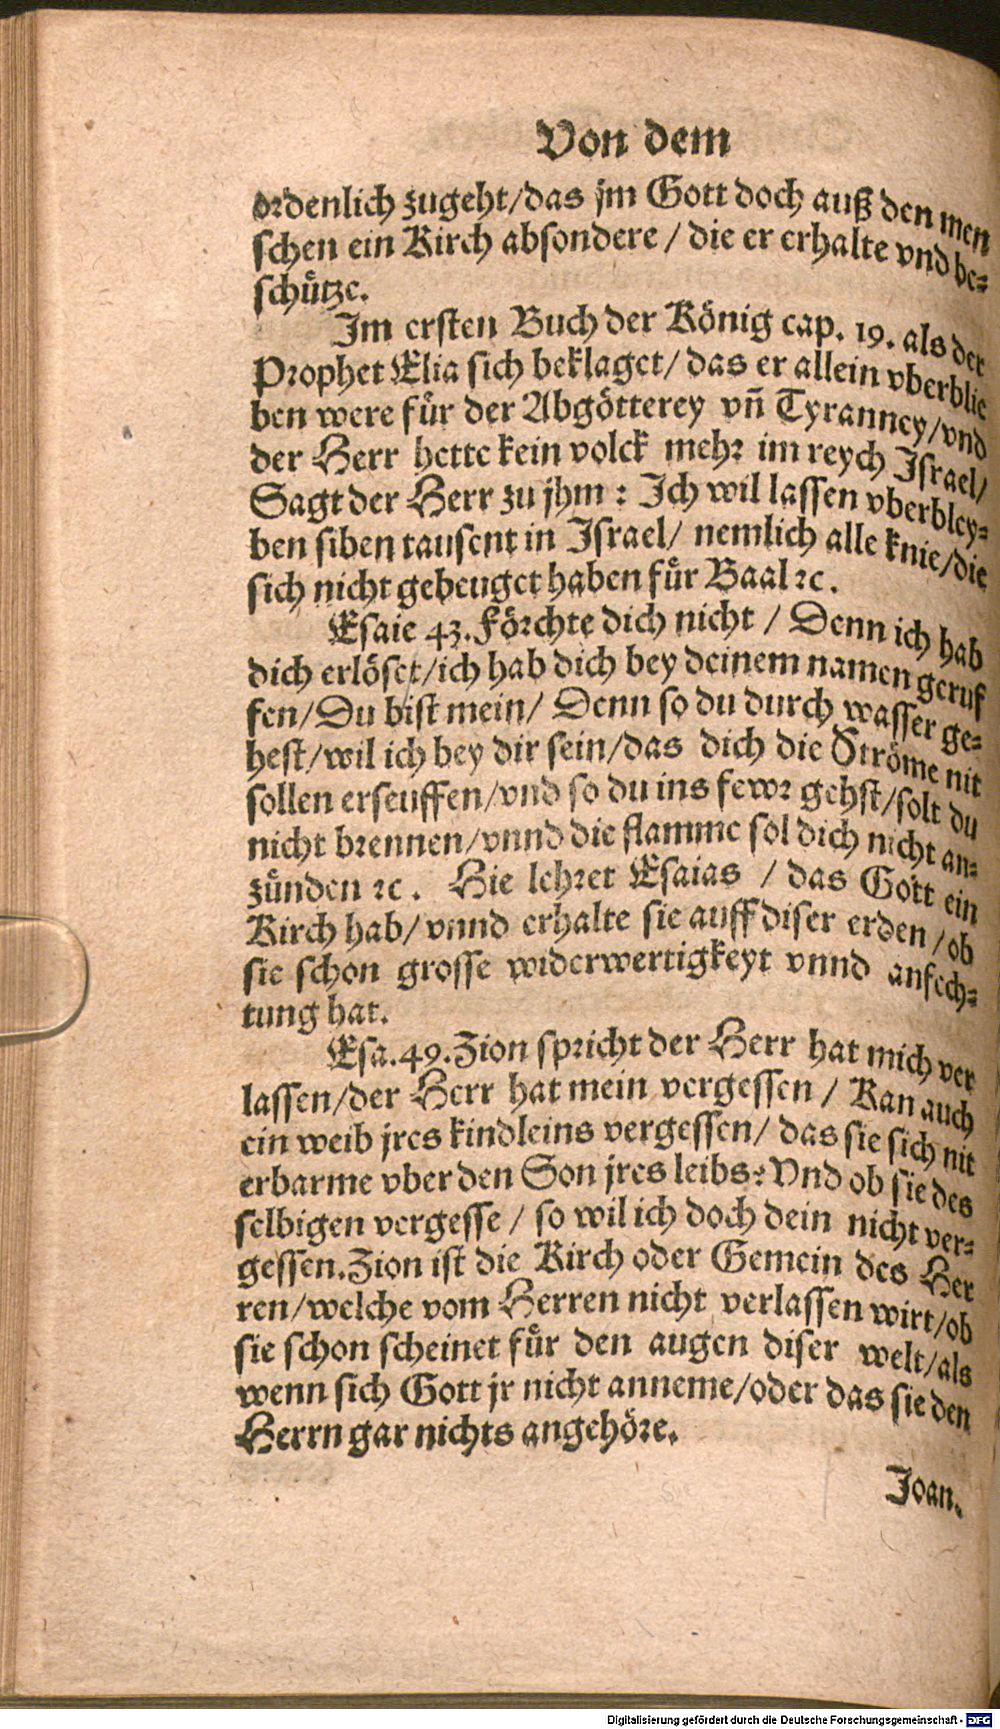 Von dem
ordenlich zugeht/das jm Gott doch auß den men
schen ein Kirch absondere / die er erhalte vnd be-
schuͤtze.
Im ersten Buch der Koͤnig cap. 19. als der
Prophet Elia sich beklaget/ das er allein vberblie
ben were fuͤr der Abgoͤtterey vñ Tyranney/vnd
der Herr hette kein volck mehr im reych Israel/
Sagt der Herr zu jhm : Ich wil lassen vberbley-
ben siben tausent in Israel/ nemlich alle knie/die
sich nicht gebeuget haben fuͤr Baal ꝛc.
Esaie 43. Foͤrchte dich nicht / Denn ich hab
dich erloͤset/ich hab dich bey deinem namen geruf
fen/Du bist mein/ Denn so du durch wasser ge-
hest/wil ich bey dir sein/das dich die Stroͤme nit
sollen erseuffen/vnd so du ins fewr gehst/solt du
nicht brennen/vnnd die flamme sol dich nicht an-
zuͤnden ꝛc. Hie lehret Esaias / das Gott ein
Kirch hab/ vnnd erhalte sie auff diser erden /ob
sie schon grosse widerwertigkeyt vnnd anfech-
tung hat.
Esa.49.Zion spricht der Herr hat mich ver
lassen/der Herr hat mein vergessen / Kan auch
ein weib jres kindleins vergessen/ das sie sich nit
erbarme vber den Son jres leibs? Vnd ob sie des
selbigen vergesse / so wil ich doch dein nicht ver-
gessen.Zion ist die Kirch oder Gemein des Her
ren/welche vom Herren nicht verlassen wirt/ob
sie schon scheinet fuͤr den augen diser welt/als
wenn sich Gott jr nicht anneme/oder das sie den
Herrn gar nichts angehoͤre.
Joan.
Digitalisierung gefördert durch die Deutsche Forschungsgemeinschaft - DFG